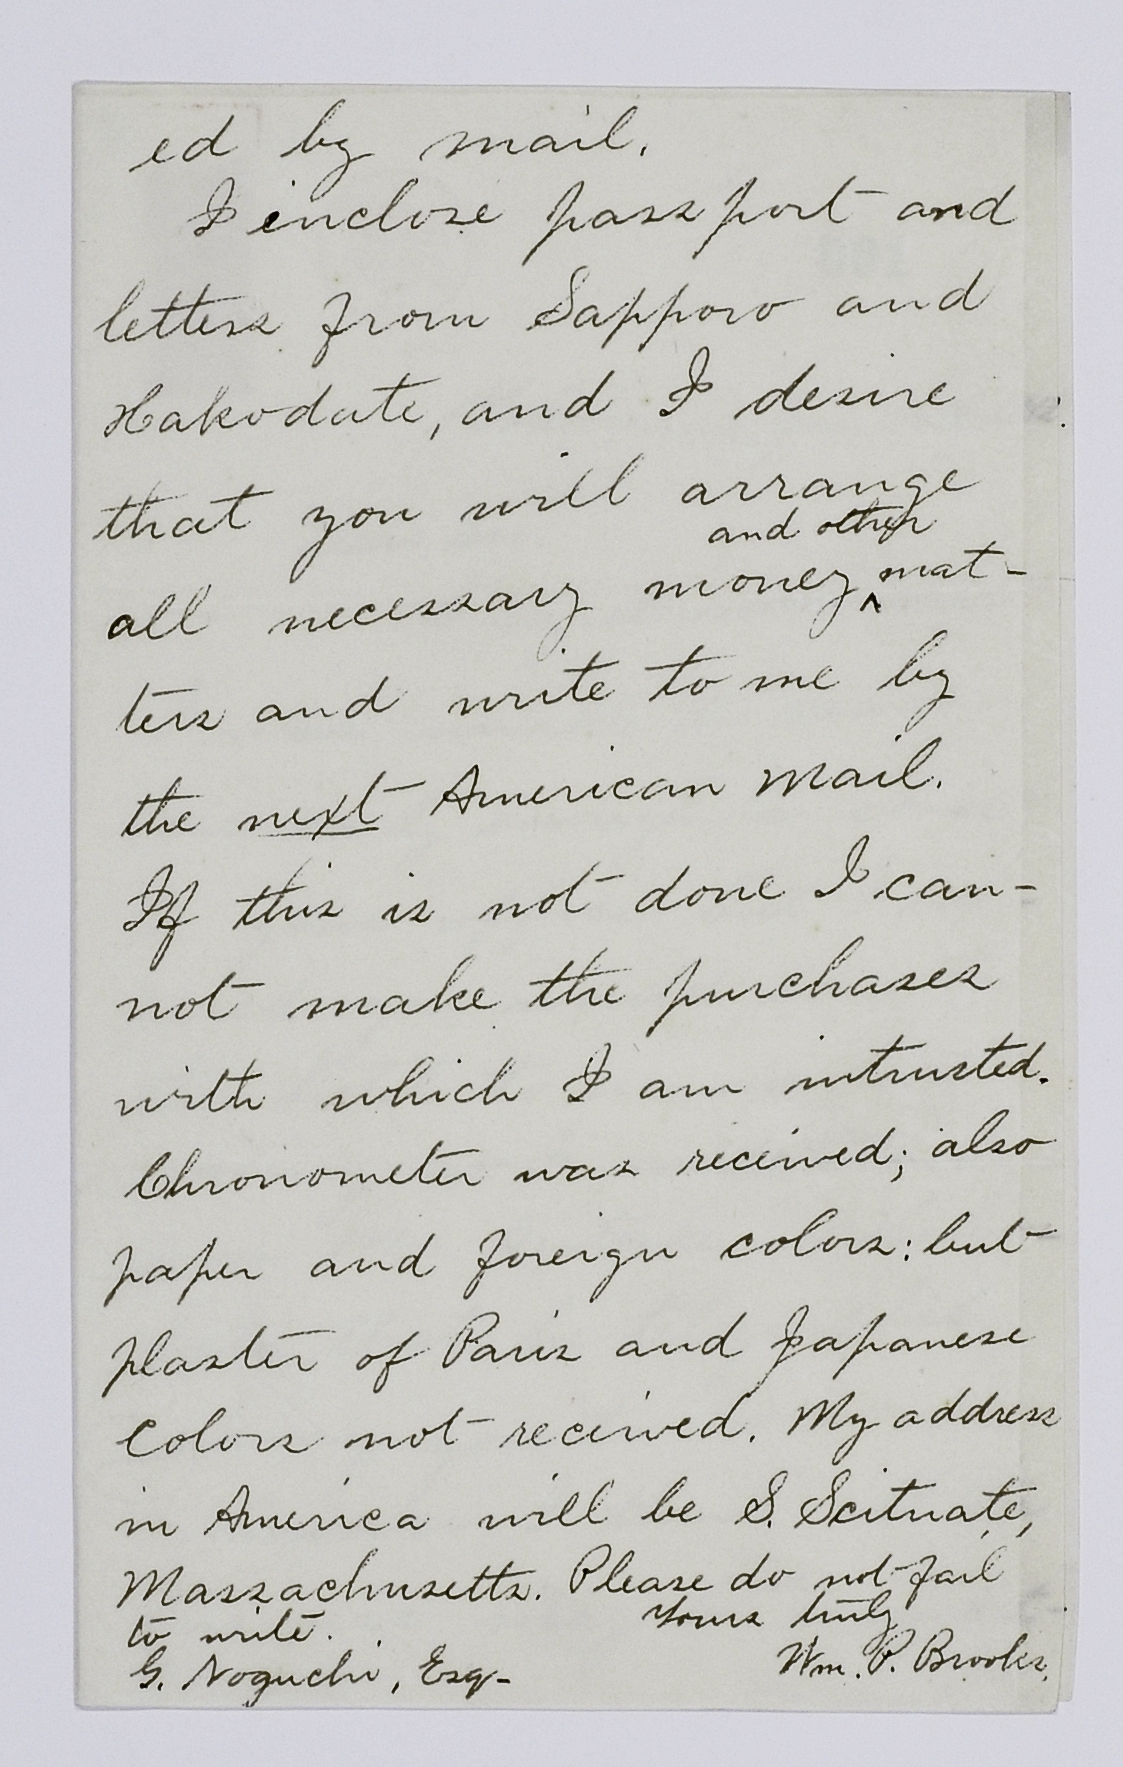 ed by mail.
I inclose passport and
letters from Sapporo and
Hakodate, and I desire
that you will arrange
and other
all necessary money ^ mat-
ters and write to me by
the next American mail.
If this is not done I can-
not make the purchases
with which I am intrusted.
Chronometer was received; also
paper and foreign colors: but
plaster of Paris and Japanese
colors not received. My address
in America will be S. Scituate,
Massachusetts. Please do not fail
to write.
Yours truly
G. Noguchi, Esq-
Wm. P. Brooks.